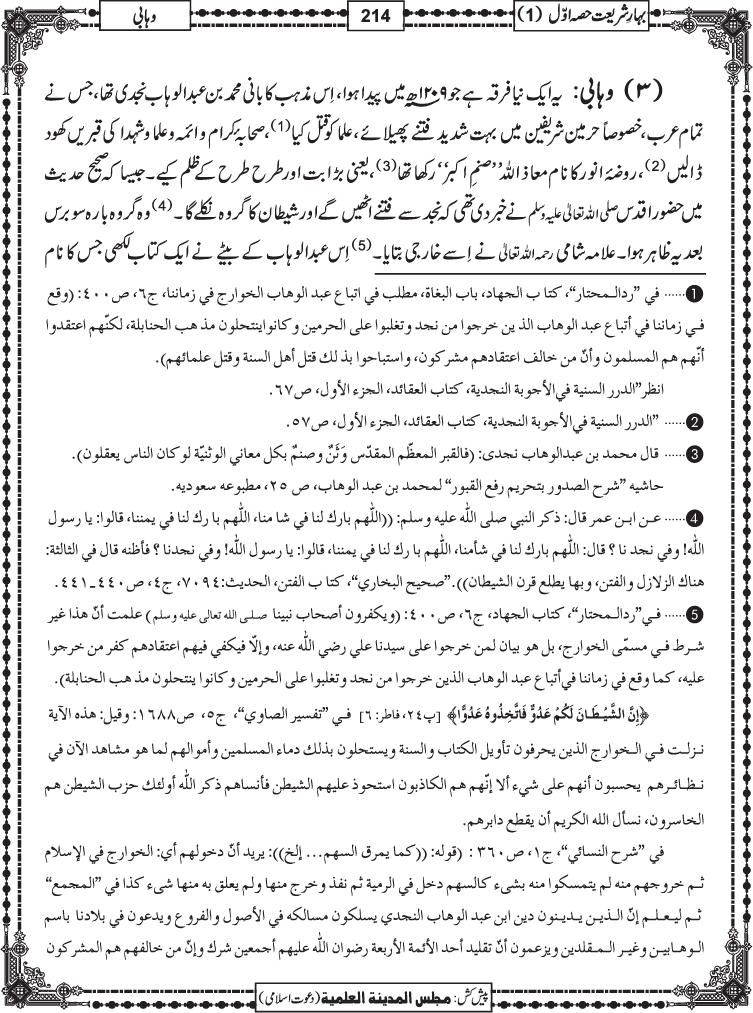 بہارِ شریعت حصہ اوّل (1)
214
وہابی
(۳) وہابی: یہ ایک نیا فرقہ ہے جو ۱۲۰۹ھ میں پیدا ہوا، اِس مذہب کا بانی محمد بن عبدالوہاب نجدی تھا، جس نے
تمام عرب، خصوصاً حرمین شریفین میں بہت شدید فتنے پھیلائے، علما کو قتل کیا(1)، صحابۂ کرام و ائمہ و علما و شہدا کی قبریں کھود
ڈالیں(2)، روضۂ انور کا نام معاذ اللہ ’’صنمِ اکبر‘‘ رکھا تھا(3)، یعنی بڑا بت اور طرح طرح کے ظلم کیے۔ جیسا کہ صحیح حدیث
میں حضور اقدس صلی اللہ تعالیٰ علیہ وسلم نے خبر دی تھی کہ نجد سے فتنے اٹھیں گے اور شیطان کا گروہ نکلے گا۔(4) وہ گروہ بارہ سو برس
بعد یہ ظاہر ہوا۔ علامہ شامی رحمہ اللہ تعالیٰ نے اِسے خارجی بتایا۔(5) اِس عبدالوہاب کے بیٹے نے ایک کتاب لکھی جس کا نام
1...... في ”ردالـمحتار“، كتاب الجهاد، باب البغاة، مطلب في اتباع عبد الوهاب الخوارج في زماننا، ج٦، ص٤٠٠: (وقع
فـي زماننا في أتباع عبد الوهاب الذين خرجوا من نجد وتغلبوا على الحرمين وكانوا ينتحلون مذهب الحنابلة، لكنّهم اعتقدوا
أنّهم هم المسلمون وأنّ من خالف اعتقادهم مشركون، واستباحوا بذلك قتل أهل السنة وقتل علمائهم).
انظر ”الدرر السنية في الأجوبة النجدية، كتاب العقائد، الجزء الأول، ص٦٧.
2...... ”الدرر السنية في الأجوبة النجدية، كتاب العقائد، الجزء الأول، ص٥٧.
3...... قال محمد بن عبدالوهاب نجدى: (فالقبر المعظّم المقدّس وَثَنٌ وصنمٌ بكل معاني الوثنيّة لو كان الناس يعقلون).
حاشيه ”شرح الصدور بتحريم رفع القبور“ لمحمد بن عبد الوهاب، ص ٢٥، مطبوعه سعوديه.
4...... عـن ابـن عمر قال: ذكر النبي صلى الله عليه وسلم: ((اللّهم بارك لنا في شامنا، اللّهم بارك لنا في يمننا، قالوا: يا رسول
الله! وفي نجدنا؟ قال: اللّهم بارك لنا في شأمنا، اللّهم بارك لنا في يمننا، قالوا: يا رسول الله! وفي نجدنا؟ فأظنه قال في الثالثة:
هناك الزلازل والفتن، وبها يطلع قرن الشيطان)). ”صحيح البخاري“، كتاب الفتن، الحديث: ٧٠٩٤، ج٤، ص٤٤٠ـ٤٤١.
5...... فـي ”ردالـمحتار“، كتاب الجهاد، ج٦، ص٤٠٠: (ويكفرون أصحاب نبينا صلـى الله تعالى عليه وسلم) علمت أنّ هذا غير
شـرط فـي مسمّى الخوارج، بل هو بيان لمن خرجوا على سيدنا علي رضي الله عنه، وإلّا فيكفي فيهم اعتقادهم كفر من خرجوا
عليه، كما وقع في زماننا في أتباع عبد الوهاب الذين خرجوا من نجد وتغلبوا على الحرمين وكانوا ينتحلون مذهب الحنابلة).
﴿اِنَّ الشَّیْطٰنَ لَکُمْ عَدُوٌّ فَاتَّخِذُوۡہُ عَدُوًّا﴾ [پ٢٤، فاطر: ٦] فـي ”تفسير الصاوي“، ج٥، ص١٦٨٨: وقيل: هذه الآية
نـزلـت فـي الـخوارج الذين يحرفون تأويل الكتاب والسنة ويستحلون بذلك دماء المسلمين وأموالهم لما هو مشاهد الآن في
نـظـائـرهم يحسبون أنهم على شيء ألا إنّهم هم الكاذبون استحوذ عليهم الشيطن فأنساهم ذكر الله أولئك حزب الشيطن هم
الخاسرون، نسأل الله الكريم أن يقطع دابرهم.
في ”شرح النسائي“، ج١، ص٣٦٠: (قوله: ((كما يمرق السهم... إلخ)): يريد أنّ دخولهم أي: الخوارج في الإسلام
ثـم خروجهم منه لم يتمسكوا منه بشيء كالسهم دخل في الرمية ثم نفذ وخرج منها ولم يعلق به منها شيء كذا في ”المجمع“
ثـم ليـعـلـم إنّ الذـين يـديـنون دين ابن عبد الوهاب النجدي يسلكون مسالكه في الأصول والفروع ويدعون في بلادنا باسم
الـوهـابـيـن وغـير الـمـقلدين ويزعمون أنّ تقليد أحد الأئمة الأربعة رضوان الله عليهم أجمعين شرك وإنّ من خالفهم هم المشركون
پیش کش: مجلس المدینة العلمیة (دعوت اسلامی)